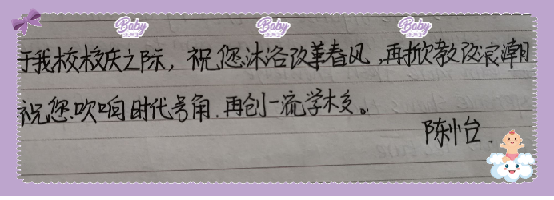 Baby Baby Baby
于我校校庆之际，祝您沐浴改革春风，再掀教改浪潮
祝您吹响时代号角.再创一流学校。
陈怡.